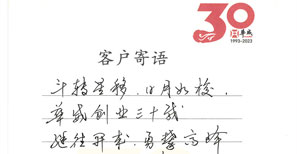 30
華威
1993-2023
客户寄语
斗转星移,日月如梭,
华威创业三十载
继往开来,勇攀高峰